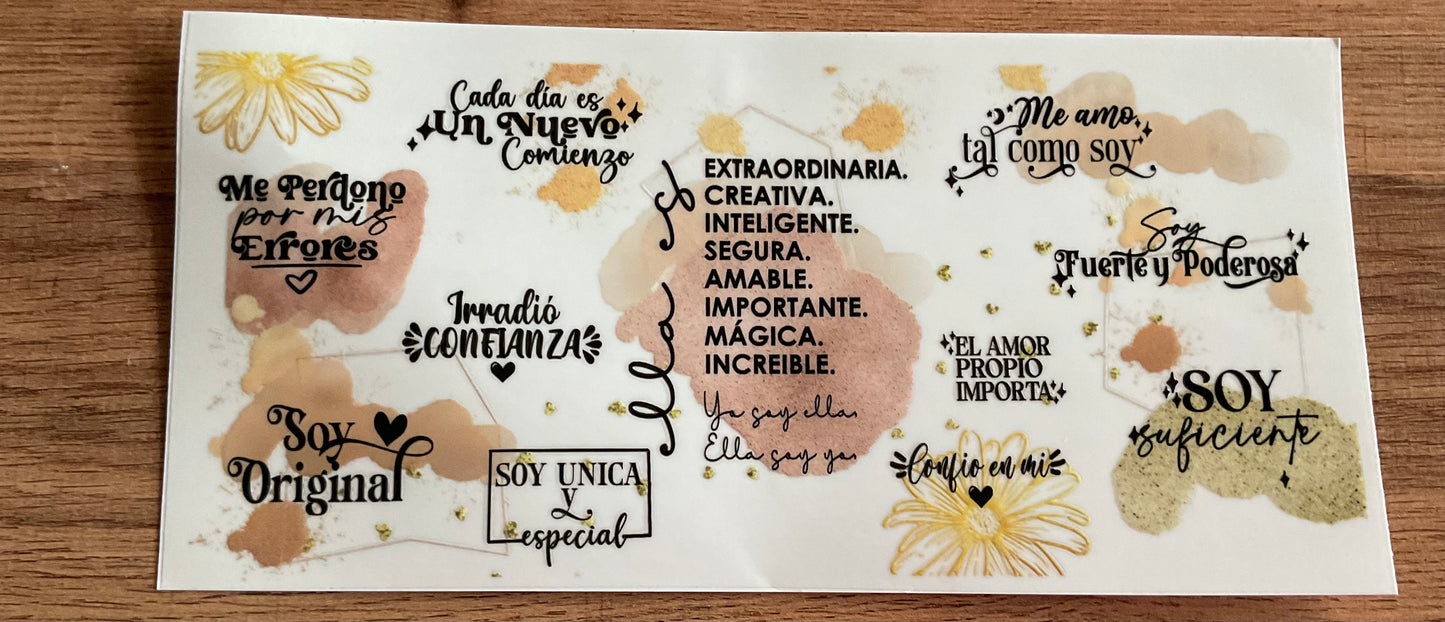 Cada día es
Un Nuevo
Comienzo
Me Perdono
por mis
Errores
Irradió
CONFIANZA
Soy
Original
SOY UNICA
Y
especial
ella es
EXTRAORDINARIA.
CREATIVA.
INTELIGENTE.
SEGURA.
AMABLE.
IMPORTANTE.
MÁGICA.
INCREIBLE.
Yo soy ella,
Ella soy yo.
Me amo
tal como soy
Soy
Fuerte y Poderosa
EL AMOR
PROPIO
IMPORTA
SOY
suficiente
Confio en mi